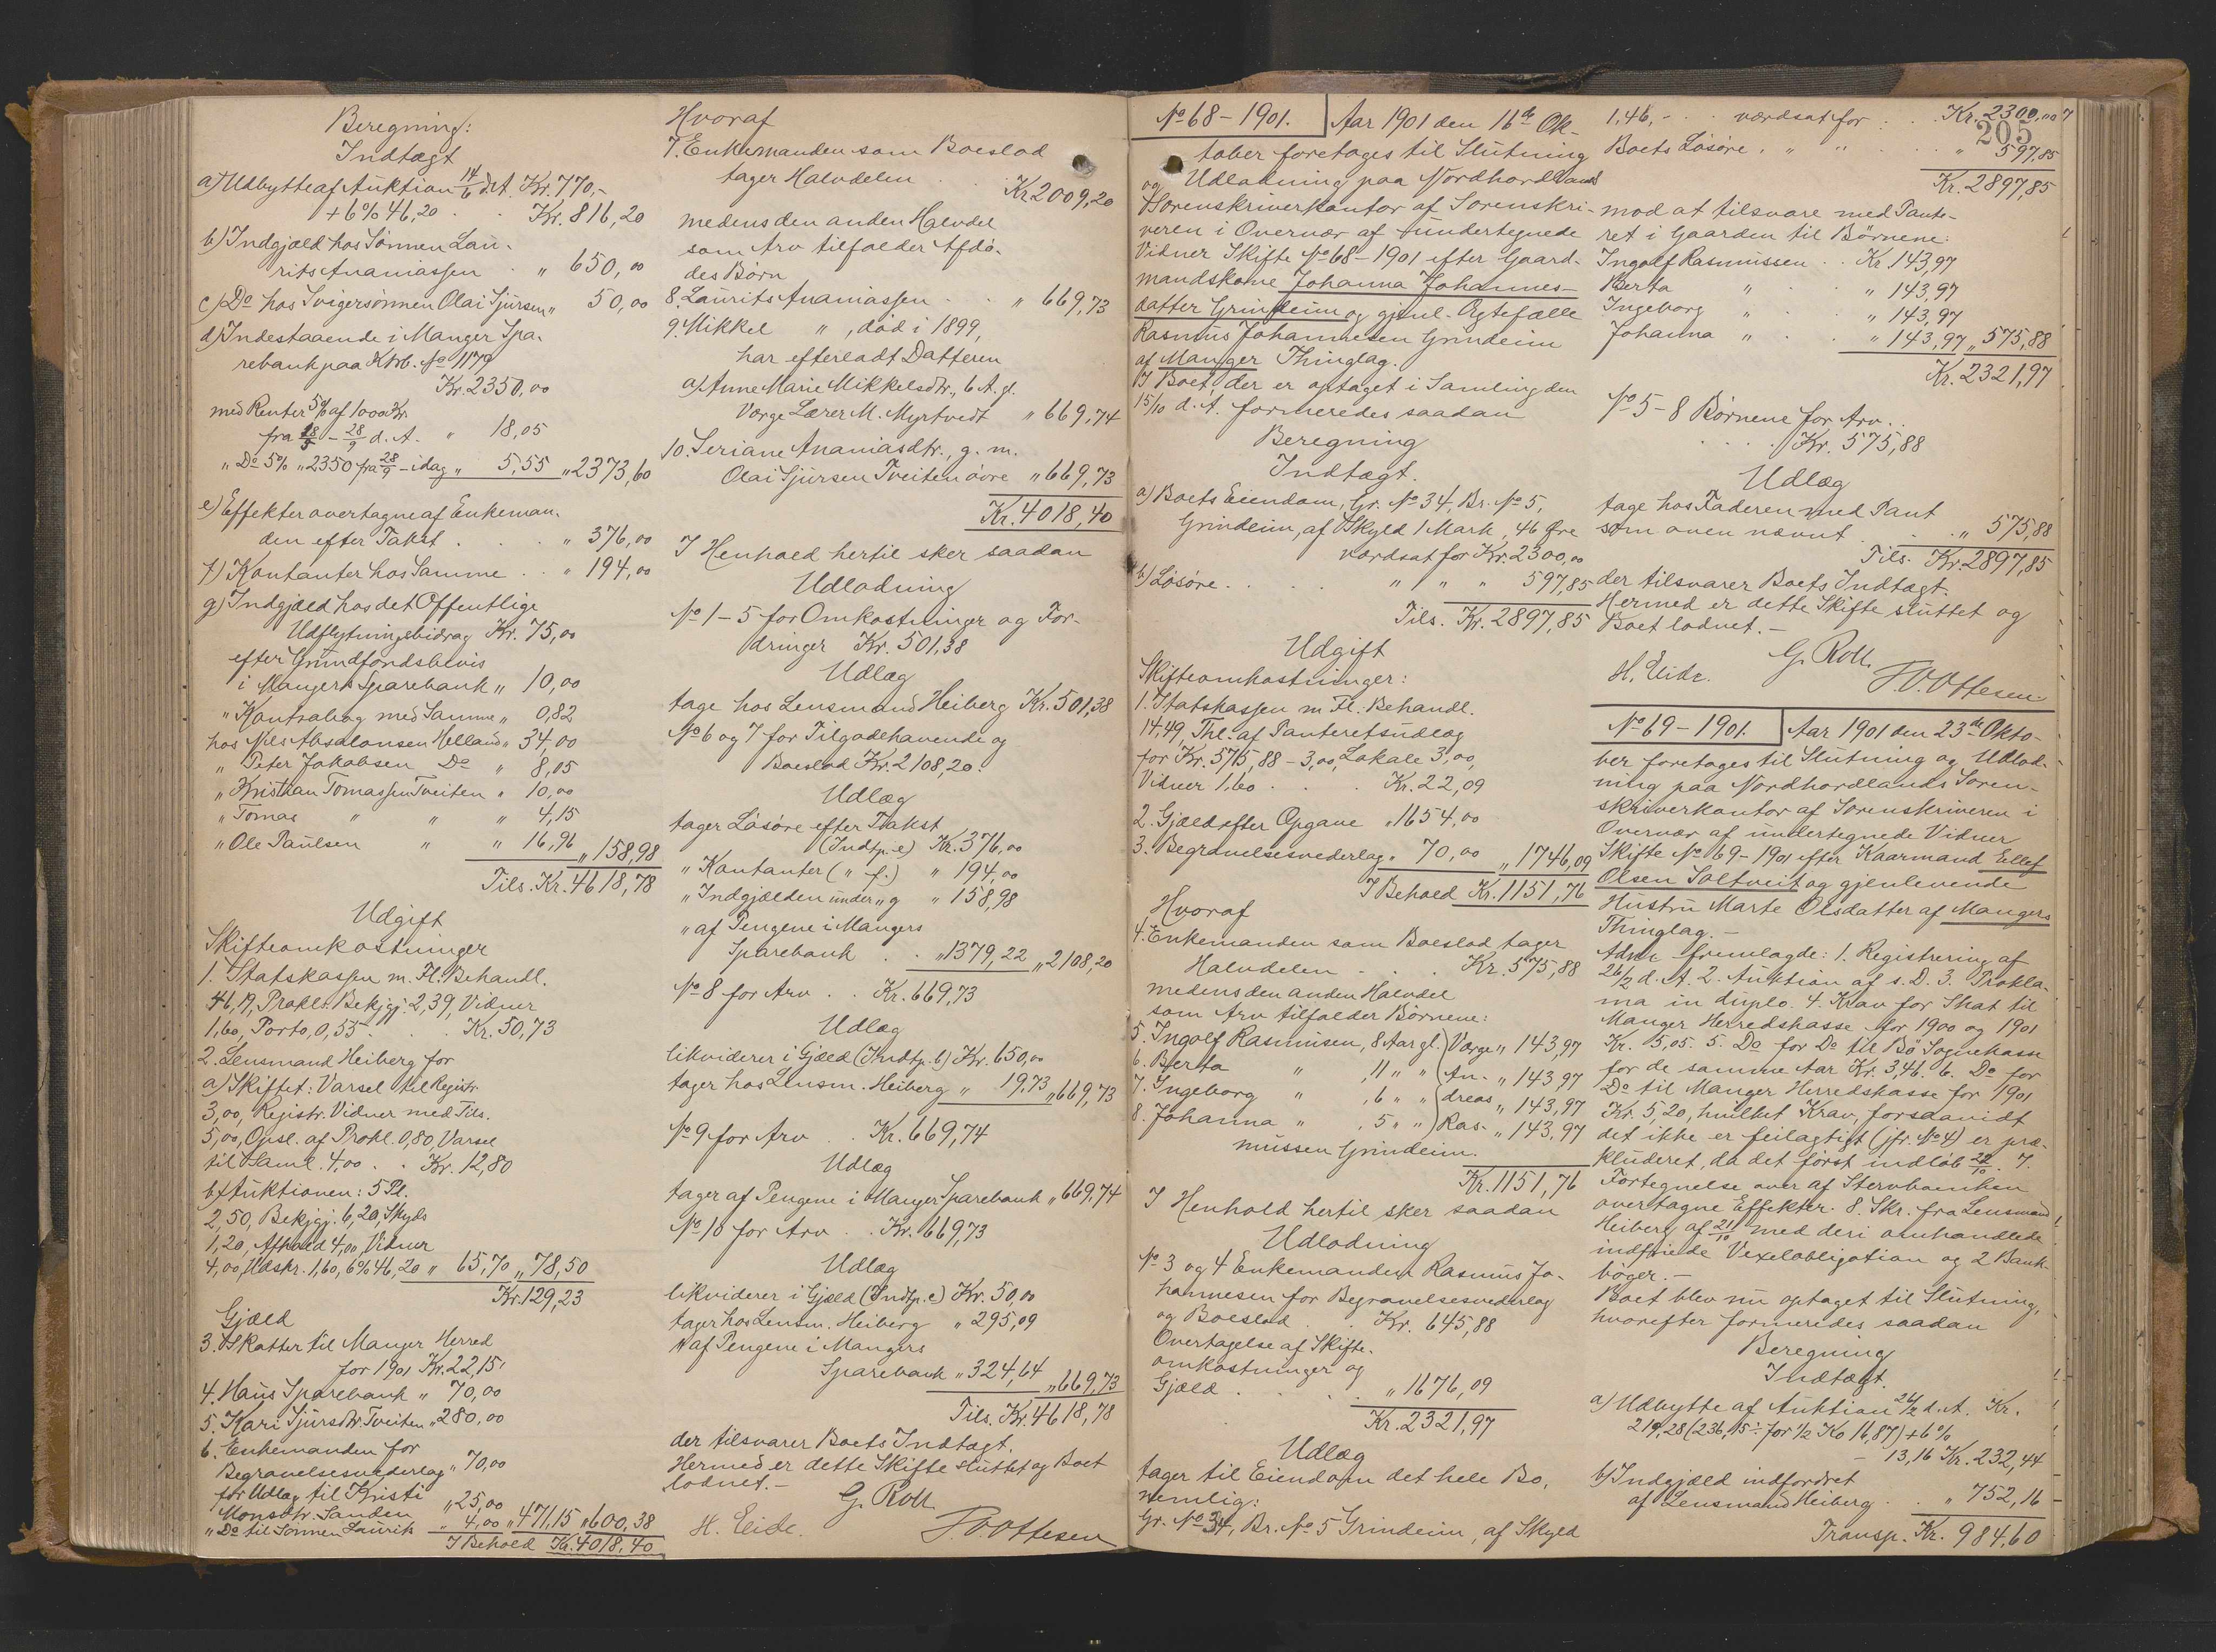 Beregning:
Indtægt
a) Udbytte af Auktion 14/6 d. A. Kr. 770,-
+ 6% 46,20 . . Kr. 816,20
b) Indgjæld hos Sønnen Lau-
rits Ananiassen . „ 650,00
c) Do hos Svigersønnen Olai Sjursen „ 50,00
d) Indestaaende i Manger Spa-
rebank paa Ktrb. No 1179
Kr. 2350,00
med Renter 5% af 1000 Kr.
fra 18/5 - 28/9 d. A. „ 18,05
„ Do 5% „ 2350 fra 28/9 - idag „ 5,55 „ 2373,60
e) Effekter overtagne af Enkeman-
den efter Takst . . . „ 376,00
f) Kontanter hos Samme . . „ 194,00
g) Indgjæld hos det Offentlige
Udflytningsbidrag Kr. 75,00
efter Grundfondsbevis
i Mangers Sparebank „ 10,00
„ Kontrabog med Samme „ 0,82
hos Nils Absalonsen Helland „ 34,00
„ Peter Jakobsen Do „ 8,05
„ Kristian Tomassen Tveiten „ 10,00
„ Tomas „ „ „ 4,15
„ Ole Paulsen „ „ 16,96 „ 158,98
Tils. Kr. 4618,78
Udgift
Skifteomkostninger
1. Statskassen m. Fl. Behandl.
46,19, Prokl. Bekjgj. 2,39, Vidner
1,60, Porto, 0,55 . . Kr. 50,73
2. Lensmand Heiberg for
a) Skiftet: Varsel til Registr.
3,00, Registr. Vidner med Tils.
5,00, Opsl. af Prokl. 0,80, Varsel
til Saml. 4,00 . . Kr. 12,80
b) Auktionen: 5 Pl.
2,50, Bekjgj. 6,20, Skyds
1,20, Afhold 4,00, Vidner
4,00, Udskr. 1,60, 6% 46,20 „ 65,70 „ 78,50
Kr. 129,23
Gjæld
3. Skatter til Manger Herred
for 1901 Kr. 22,15
4. Haus Sparebank „ 70,00
5. Kari Sjursdtr. Tveiten „ 280,00
6. Enkemanden for
Begravelsesvederlag „ 70,00
for Udlæg til Kristi
Monsdtr. Sanden „ 25,00
„ Do til Sønnen Laurits „ 4,00 „ 471,15 „ 600,38
I Behold Kr. 4018,40
Hvoraf
7. Enkemanden som Boeslod
tager Halvdelen . . Kr. 2009,20
medens den anden Halvdel
som Arv tilfalder Afdø-
des Børn
8. Laurits Ananiassen . . „ 669,73
9. Mikkel „ , død i 1899,
har efterladt Datteren
a) Anne Marie Mikkelsdtr., 6 A. gl.
Værge Lærer M. Myrtvedt „ 669,74
10. Seriane Ananiasdtr., g. m.
Olai Sjursen Tveiten øvre „ 669,73
Kr. 4018,40
I Henhold hertil sker saadan
Udlodning
No 1-5 for Omkostninger og For-
dringer Kr. 501,38
Udlæg
tage hos Lensmand Heiberg Kr. 501,38
No 6 og 7 for Tilgodehavende og
Boeslod Kr. 2108,20.
Udlæg
tager Løsøre efter Takst
(Indtp. e) Kr. 376,00
„ Kontanter ( „ f.) „ 194,00
„ Indgjælden under „ g „ 158,98
„ af Pengene i Mangers
Sparebank . . „ 1379,22 „ 2108,20
No 8 for Arv . . Kr. 669,73
Udlæg
likviderer i Gjæld (Indtp. b) Kr. 650,00
tager hos Lensm. Heiberg „ 19,73 „ 669,73
No 9 for Arv . . Kr. 669,74
Udlæg
tager af Pengene i Manger Sparebank „ 669,74
No 10 for Arv . . Kr. 669,73
Udlæg
likviderer i Gjæld (Indtp. c) Kr. 50,00
tager hos Lensm. Heiberg „ 295,09
„ af Pengene i Mangers
Sparebank „ 324,64 „ 669,73
Tils. Kr. 4618,78
der tilsvarer Boets Indtægt.
Hermed er dette Skifte sluttet og Boet
lodnet.-
G. Roll.
H. Eide. P. O. Ottesen
No 68 - 1901. Aar 1901 den 16de Ok-
tober foretoges til Slutning
og Udlodning paa Nordhordlands
Sorenskriverkontor af Sorenskri-
veren i Overvær af undertegnede
Vidner Skifte No 68 - 1901 efter Gaard-
mandskone Johanna Johannes-
datter Grindeim og gjenl. Ægtefælle
Rasmus Johannesen Grindeim
af Manger Thinglag.
I Boet, der er optaget i Samling den
15/10 d. A. formeredes saadan
Beregning
Indtægt.
a) Boets Eiendom, Gr. No 34, Br. No 5,
Grindeim, af Skyld 1 Mark, 46 Øre
værdsat for Kr. 2300,00
b) Løsøre . . . „ „ „ 597,85
Tils. Kr. 2897,85
Udgift
Skifteomkostninger:
1. Statskassen m. Fl. Behandl.
14,49, Thl. af Panteretsudlæg
for Kr. 575,88 - 3,00, Lokale 3,00,
Vidner 1,60 . . . Kr. 22,09
2. Gjæld efter Opgave „ 1654,00
3. Begravelsesvederlag „ 70,00 „ 1746,09
I Behold Kr. 1151,76
Hvoraf
4. Enkemanden som Boeslod tager
Halvdelen . . . Kr. 575,88
medens den anden Halvdel
som Arv tilfalder Børnene:
5. Ingolf Rasmussen, 8 Aar gl. ) Værge „ 143,97
6. Berta „ , 11 „ „ ( An- „ 143,97
7. Ingeborg „ , 6 „ „ ( dreas „ 143,97
8. Johanna „ , 5 „ „ ) Ras- „ 143,97
mussen Grindeim.
Kr. 1151,76
I Henhold hertil sker saadan
Udlodning
No 3 og 4 Enkemanden Rasmus Jo-
hannesen for Begravelsesvederlag
og Boeslod . . Kr. 645,88
Overtagelse af Skifte-
omkostninger og
Gjæld . . . . „ 1676,09
Kr. 2321,97
Udlæg
tager til Eiendom det hele Bo,
nemlig:
Gr. No 34, Br. No 5 Grindeim, af Skyld
1,46, - . . værdsat for . . Kr. 2300,00
205
Boets Løsøre . „ „ . . „ 597,85
Kr. 2897,85
mod at tilsvare med Pante-
ret i Gaarden til Børnene:
Ingolf Rasmussen . . Kr. 143,97
Berta „ . . „ 143,97
Ingeborg „ . . „ 143,97
Johanna „ . . „ 143,97 „ 575,88
Kr. 2321,97
No 5-8 Børnene for Arv . .
. . . . Kr. 575,88
Udlæg
tage hos Faderen med Pant
som oven nævnt . . . „ 575,88
Tils. Kr. 2897,85
der tilsvarer Boets Indtægt.
Hermed er dette Skifte sluttet og
Boet lodnet.-
G. Roll.
H. Eide. P. O. Ottesen.
No 69 - 1901. Aar 1901 den 23de Okto-
ber foretoges til Slutning og Udlod-
ning paa Nordhordlands Soren-
skriverkontor af Sorenskriveren i
Overvær af undertegnede Vidner
Skifte No 69 - 1901 efter Kaarmand Ellef
Olsen Soltveit og gjenlevende
Hustru Marte Olsdatter af Mangers
Thinglag.-
Adm. fremlagde: 1. Registrering af
26/2 d. A. 2. Auktion af s. D. 3. Prokla-
ma in duplo. 4. Krav for Skat til
Manger Herredskasse for 1900 og 1901
Kr. 5,05. 5. Do for Do til Bø Sognekasse
for de samme Aar Kr. 3,46. 6. Do for
Do til Manger Herredskasse for 1901
Kr. 5,20, hvilket Krav, forsaavidt
det ikke er feilagtigt (jfr. No 4) er præ-
kluderet, da det først indløb 22/10. 7.
Fortegnelse over af Stervboenken
overtagne Effekter. 8. Skr. fra Lensmand
Heiberg af 21/10 med deri omhandlede
indfriede Vexelobligation og 2 Bank-
bøger.-
Boet blev nu optaget til Slutning,
hvorefter formeredes saadan
Beregning
Indtægt.
a) Udbytte af Auktion 26/2 d. A. Kr.
219,28 (236,15 ÷ for 1/2 Ko 16,87) + 6%
- 13,16 Kr. 232,44
b) Indgjæld indfordret
af Lensmand Heiberg . . „ 752,16
Transp. Kr. 984,60